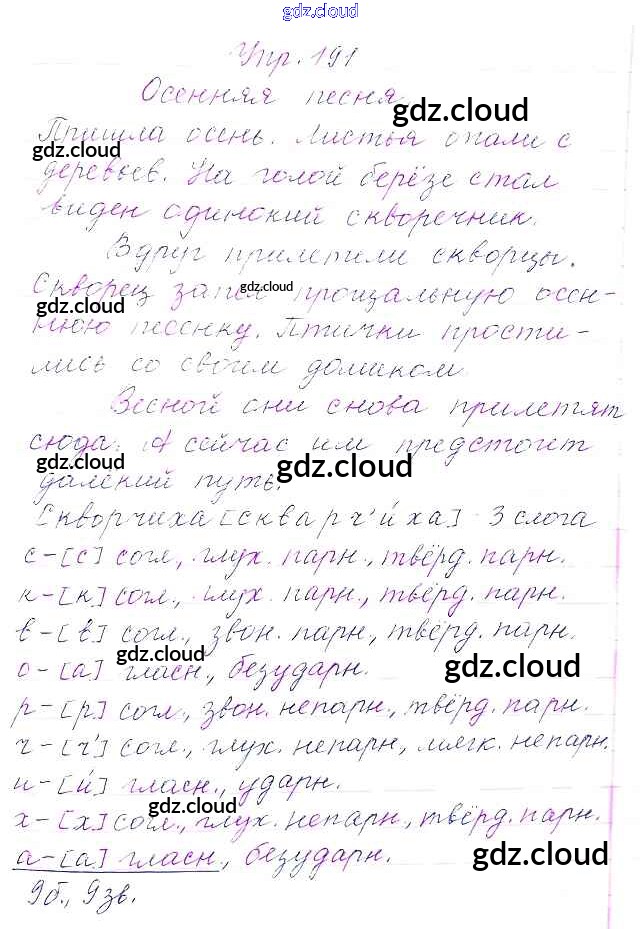 gdz.cloud
Упр. 191
Осенняя песня.
gdz.cloud
Пришла осень. Листья опали с
gdz.cloud
деревьев. На голой берёзе стал
виден одинокий скворечник.
Вдруг прилетели скворцы.
Скворец запел прощальную осен-
gdz.cloud
gdz.cloud
нюю песенку. Птички прости-
лись со своим домиком
gdz.cloud
Весной они снова прилетят
сюда. А сейчас им предстоит
gdz.cloud
gdz.cloud
далёкий путь.
Скворчиха [скварч'и́ха] - 3 слога
с-[с] согл., глух. парн., твёрд. парн.
gdz.cloud
к-[к] согл., глух. парн., твёрд. парн.
в-[в] согл., звон. парн., твёрд. парн.
gdz.cloud
о-[а] гласн., безударн.
gdz.cloud
р-[р] согл., звон. непарн., твёрд. парн.
ч-[ч'] согл., глух. непарн., мягк. непарн.
и-[и́] гласн., ударн.
gdz.cloud
х-[х] согл., глух. непарн., твёрд. парн.
а-[а] гласн., безударн.
gdz.cloud
9б., 9зв.